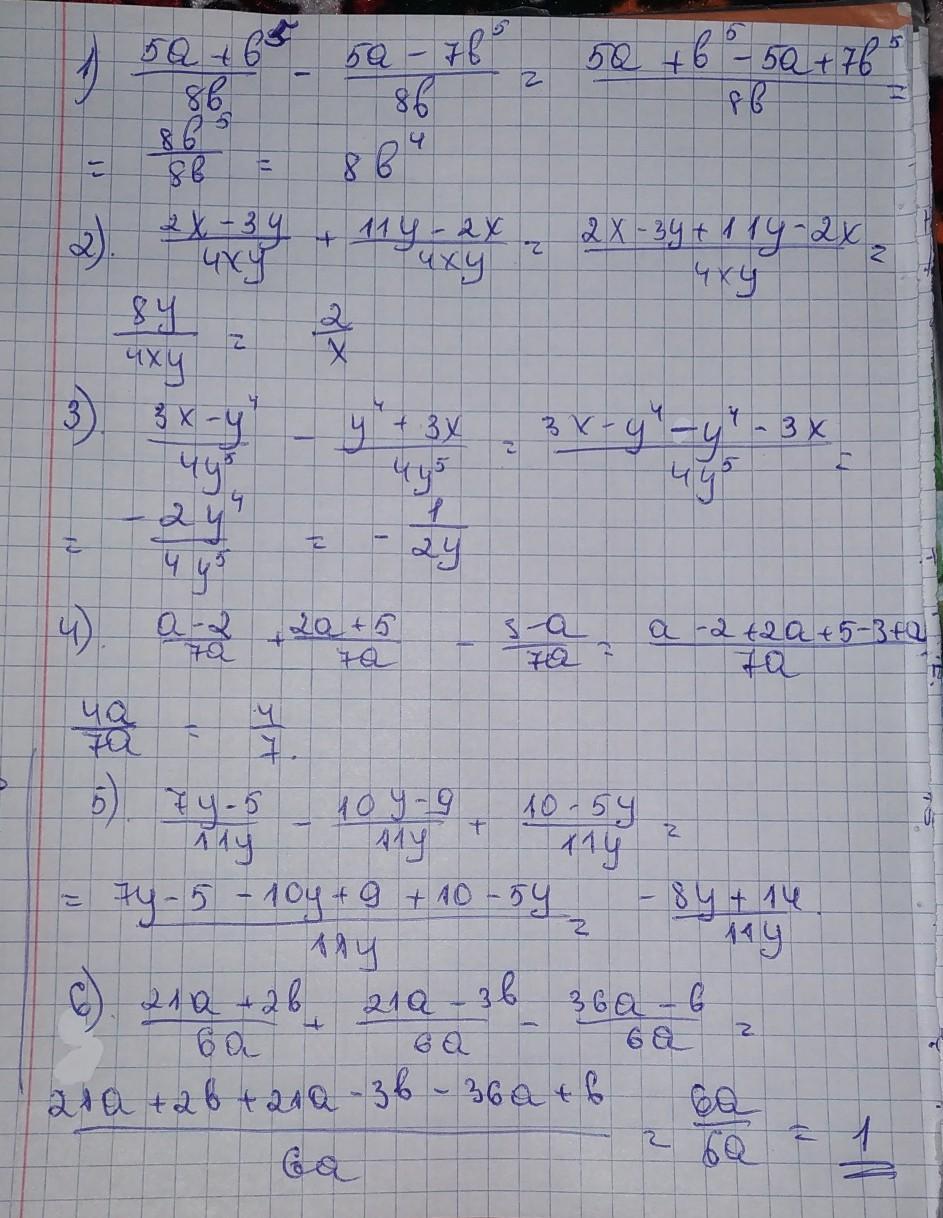 1) (5a + b^5)/(8b) - (5a - 7b^5)/(8b) = (5a + b^5 - 5a + 7b^5)/(8b) =
= (8b^5)/(8b) = 8b^4
2). (2x - 3y)/(4xy) + (11y - 2x)/(4xy) = (2x - 3y + 11y - 2x)/(4xy) =
(8y)/(4xy) = 2/x
3). (3x - y^4)/(4y^5) - (y^4 + 3x)/(4y^5) = (3x - y^4 - y^4 - 3x)/(4y^5) =
= (-2y^4)/(4y^5) = - 1/(2y)
4). (a - 2)/(7a) + (2a + 5)/(7a) - (3 - a)/(7a) = (a - 2 + 2a + 5 - 3 + a)/(7a)
(4a)/(7a) = 4/7.
5) (7y - 5)/(11y) - (10y - 9)/(11y) + (10 - 5y)/(11y) =
= (7y - 5 - 10y + 9 + 10 - 5y)/(11y) = (-8y + 14)/(11y)
6). (21a + 2b)/(6a) + (21a - 3b)/(6a) - (36a - b)/(6a) =
(21a + 2b + 21a - 3b - 36a + b)/(6a) = (6a)/(6a) = 1